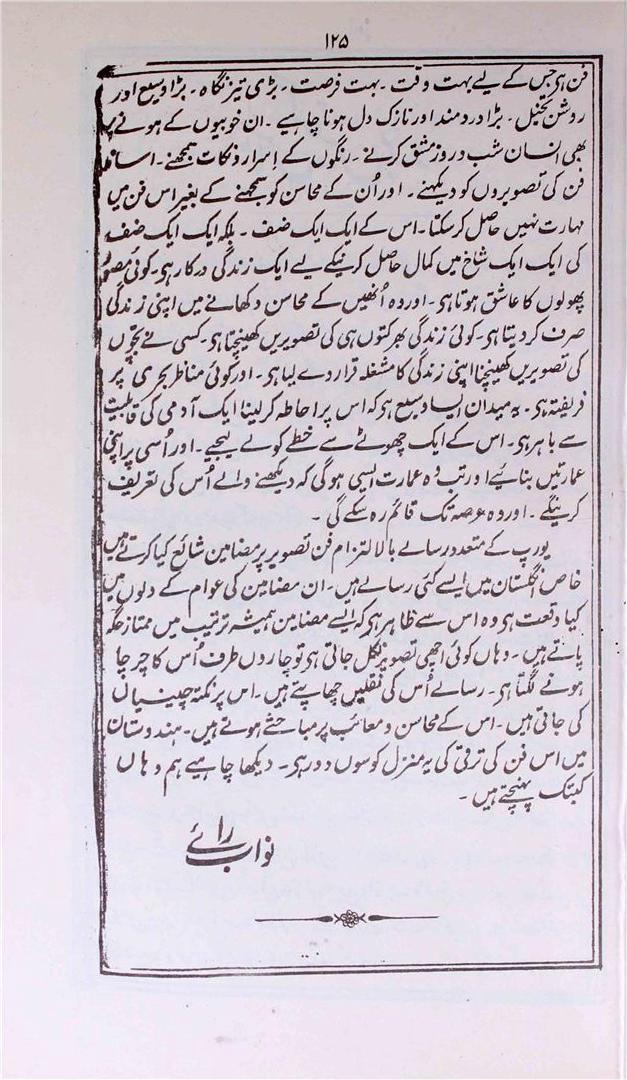 ۱۲۵
فن ہی جس کے لیے بہت وقت۔ بہت فرصت۔ بڑی تیز نگاہ۔ بڑا وسیع اور
روشن تخیل۔ بڑا دردمند اور نازک دل ہونا چاہیے۔ ان خوبیوں کے ہونے پر
بھی انسان شب و روز مشق کرنے۔ رنگوں کے اسرار و نکات سمجھنے۔ اساتذہ
فن کی تصویروں کو دیکھنے۔ اور اُن کے محاسن کو سمجھنے کے بغیر اس فن میں
مہارت نہیں حاصل کر سکتا۔ اس کے ایک ایک صنف۔ بلکہ ایک ایک صنف
کی ایک ایک شاخ میں کمال حاصل کرنیکے لیے ایک زندگی درکار ہی۔ کوئی مصور
پھولوں کا عاشق ہوتا ہی۔ اور وہ اُنھیں کے محاسن دکھانے میں اپنی زندگی
صرف کر دیتا ہی۔ کوئی زندگی بھر کتوں ہی کی تصویریں کھینچتا ہی۔ کسی نے بچّوں
کی تصویریں کھینچنا اپنی زندگی کا مشغلہ قرار دے لیا ہی۔ اور کوئی مناظر بحری پر
فریفتہ ہی۔ یہ میدان ایسا وسیع ہی کہ اس پر احاطہ کر لینا ایک آدمی کی قابلیت
سے باہر ہی۔ اس کے ایک چھوٹے سے خطے کو لے لیجیے۔ اور اُسی پر اپنی
عمارتیں بنائیے اور تب وہ عمارت ایسی ہوگی کہ دیکھنے والے اُس کی تعریف
کرینگے۔ اور وہ عرصہ تک قائم رہ سکے گی۔
یورپ کے متعدد رسالے بالالتزام فن تصویر پر مضامین شائع کیا کرتے ہیں
خاص انگلستان میں ایسے کئی رسالے ہیں۔ ان مضامین کی عوام کے دلوں میں
کیا وقعت ہی وہ اس سے ظاہر ہی کہ ایسے مضامین ہمیشہ ترتیب میں ممتاز جگہ
پاتے ہیں۔ وہاں کوئی اچھی تصویر نکل جاتی ہی تو چاروں طرف اُس کا چرچا
ہونے لگتا ہی۔ رسالے اُس کی نقلیں چھاپتے ہیں۔ اس پر نکتہ چینیاں
کی جاتی ہیں۔ اس کے محاسن و معائب پر مباحثے ہوتے ہیں۔ ہندوستان
میں اس فن کی ترقی کی یہ منزل کوسوں دور ہی۔ دیکھا چاہیے ہم وہاں
کبتک پہنچتے ہیں۔
نواب رائے